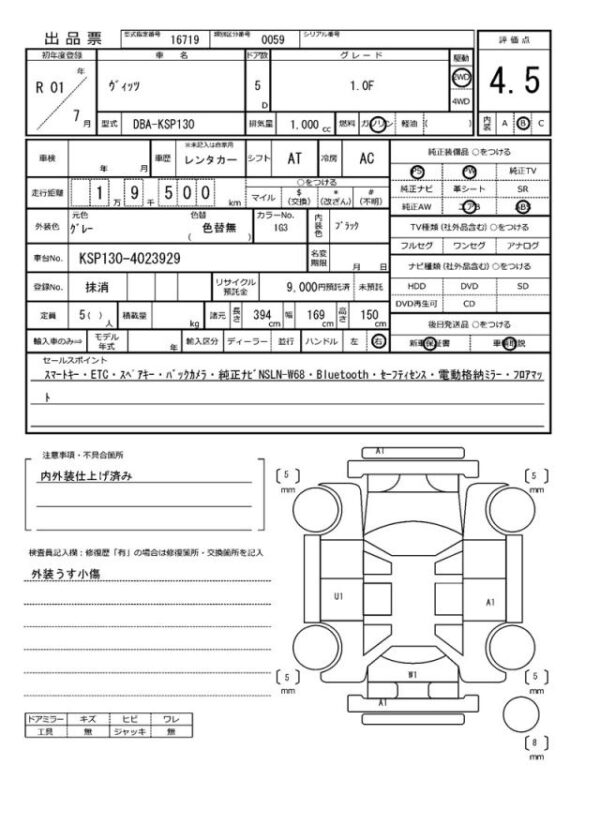 出品票 型式指定番号 16719 類別区分番号 0059 シリアル番号
評価点
初年度登録 車名 ドア数 グレード 駆動
R 01 年 ヴィッツ 5 D 1.0F 2WD 4.5
4WD
7 月 型式 DBA-KSP130 排気量 1,000 cc 燃料 ガソリン 軽油 ( ) 内装 A B C
車検 年 月 車歴 ※未記入は自家用 レンタカー シフト AT 冷房 AC 純正装備品 ○をつける
PS PW 純正TV
走行距離 1 万 9 千 5 0 0 km ○をつける
マイル $ (交換) * (改ざん) # (不明)
純正ナビ 革シート SR
純正AW エアB ABS
外装色 元色 グレー 色替 ( 色替無 ) カラーNo. 1G3 内装色 ブラック
TV種類 (社外品含む) ○をつける
フルセグ ワンセグ アナログ
車台No. KSP130-4023929 名変期限 月 日
ナビ種類 (社外品含む) ○をつける
登録No. 抹消 リサイクル預託金 9,000円預託済 未預託
HDD DVD SD
DVD再生可 CD
定員 5 ( ) 人 積載量 kg 諸元 長さ 394 cm 幅 169 cm 高さ 150 cm
後日発送品 ○をつける
輸入車のみ⇒ モデル年式 年 輸入区分 ディーラー 並行 ハンドル 左 右 新車保証書 車輌取説
セールスポイント
スマートキー・ETC・スペアキー・バックカメラ・純正ナビNSLN-W68・Bluetooth・セーフティセンス・電動格納ミラー・フロアマッ
ト
注意事項・不具合箇所
内外装仕上げ済み
検査員記入欄:修復歴「有」の場合は修復箇所・交換箇所を記入
外装うす小傷
A1
5 mm
5 mm
U1
A1
W1
A1
5 mm
5 mm
8 mm
ドアミラー キズ ヒビ ワレ
工具 無 ジャッキ 無